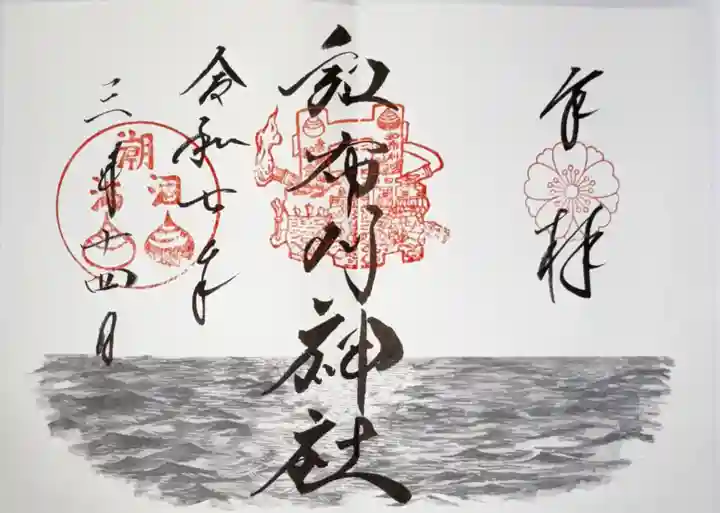 奉拝
和布刈神社
令和七年
三月十四日
潮